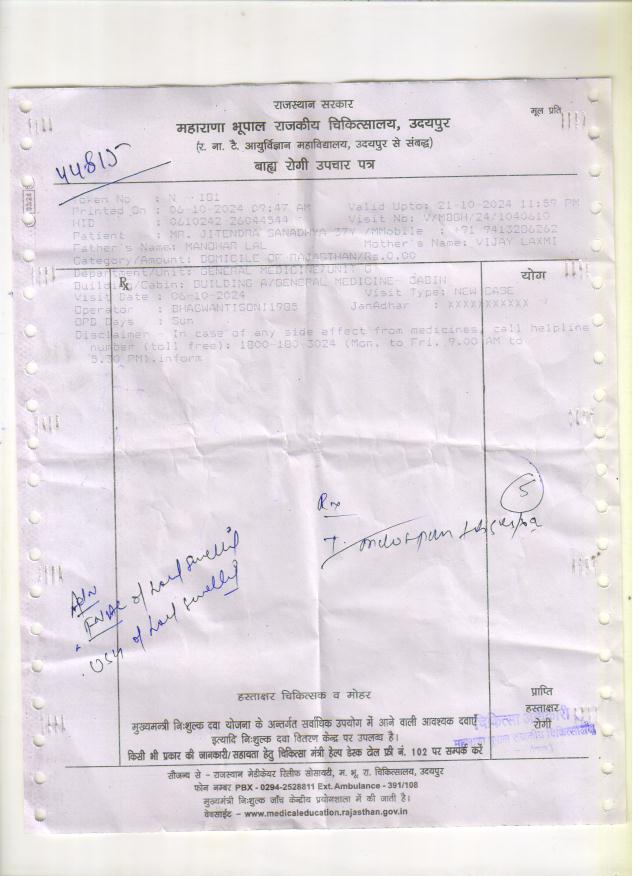 राजस्थान सरकार
मूल प्रति
महाराणा भूपाल राजकीय चिकित्सालय, उदयपुर
(र. ना. टै. आयुर्विज्ञान महाविद्यालय, उदयपुर से संबद्ध)
बाह्य रोगी उपचार पत्र
44815
Token No : N - 181
Printed On : 06-10-2024 09:47 AM Valid Upto: 21-10-2024 11:59 PM
HID : 0610242 26044544 Visit No: V/MBGH/24/1040610
Patient : MR. JITENDRA SANADHYA 37Y /M Mobile : +91 7413286262
Father's Name: MANOHAR LAL Mother's Name: VIJAY LAXMI
Category/Amount: DOMICILE OF RAJASTHAN/Rs.0.00
Department/Unit: GENERAL MEDICINE/UNIT
Rx
योग
Building/Cabin: BUILDING A/GENERAL MEDICINE- CABIN
Visit Date : 06-10-2024 Visit Type: NEW CASE
Operator : BHAGWANTISONI1985 JanAadhar : XXXXXXXXXXX
OPD Days : Sun
Disclaimer - In case of any side effect from medicines, call helpline
number (toll free): 1800-180-3024 (Mon. to Fri. 9.00 AM to
5.30 PM).inform
5
Rx
T.
Adv
FNAC of swelling
USG of swelling
हस्ताक्षर चिकित्सक व मोहर
प्राप्ति
हस्ताक्षर
रोगी
मुख्यमन्त्री निःशुल्क दवा योजना के अन्तर्गत सर्वाधिक उपयोग में आने वाली आवश्यक दवाएँ
इत्यादि निःशुल्क दवा वितरण केन्द्र पर उपलब्ध है।
किसी भी प्रकार की जानकारी/सहायता हेतु चिकित्सा मंत्री हेल्प डेस्क टोल फ्री नं. 102 पर सम्पर्क करें
चिकित्सा अधिकारी
सौजन्य से - राजस्थान मेडीकेयर रिलीफ सोसायटी, म. भू. रा. चिकित्सालय, उदयपुर
फोन नम्बर PBX - 0294-2528811 Ext. Ambulance - 391/108
मुख्यमंत्री निःशुल्क जाँच केन्द्रीय प्रयोगशाला में की जाती है।
वेबसाईट - www.medicaleducation.rajasthan.gov.in